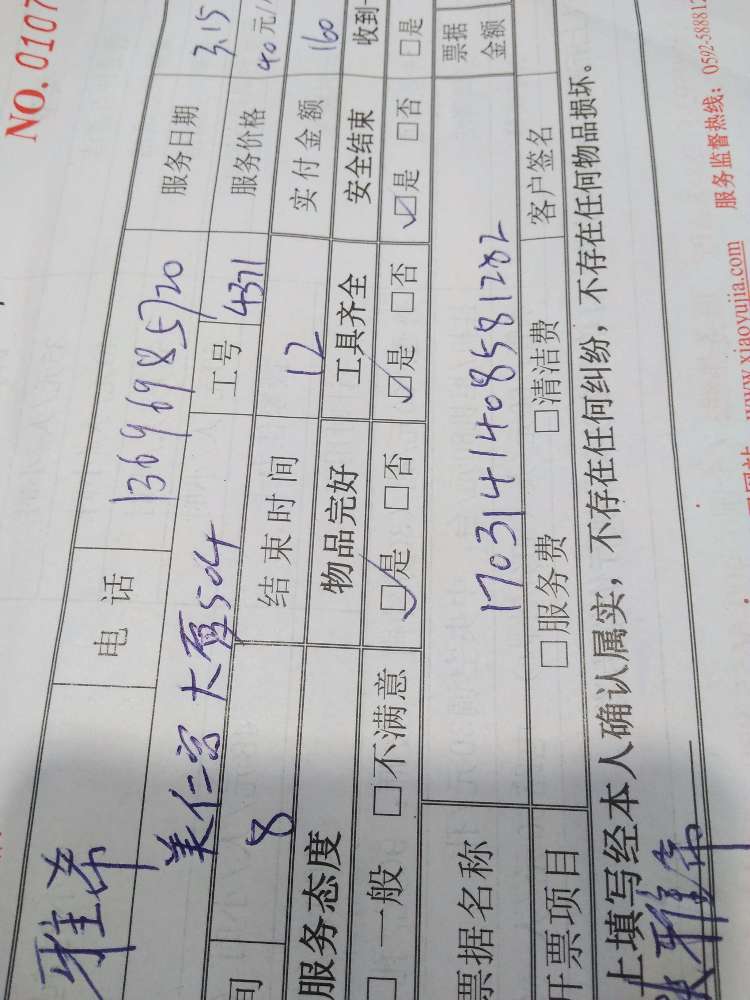 NO. 0107
雅希 电话 13696985720 服务日期 3.15
美仁宫大厦504 工号 4371 服务价格 40元/
间 8 结束时间 12 实付金额 160
服务态度 物品完好 工具齐全 安全结束 收到
□一般 □不满意 ☑是 □否 ☑是 □否 ☑是 □否 □是
票据名称 1703141408581282 票据金额
开票项目 □服务费 □清洁费 客户签名
上填写经本人确认属实，不存在任何纠纷，不存在任何物品损坏。
雅希
www.xiaoyujia.com 服务监督热线：0592-588812